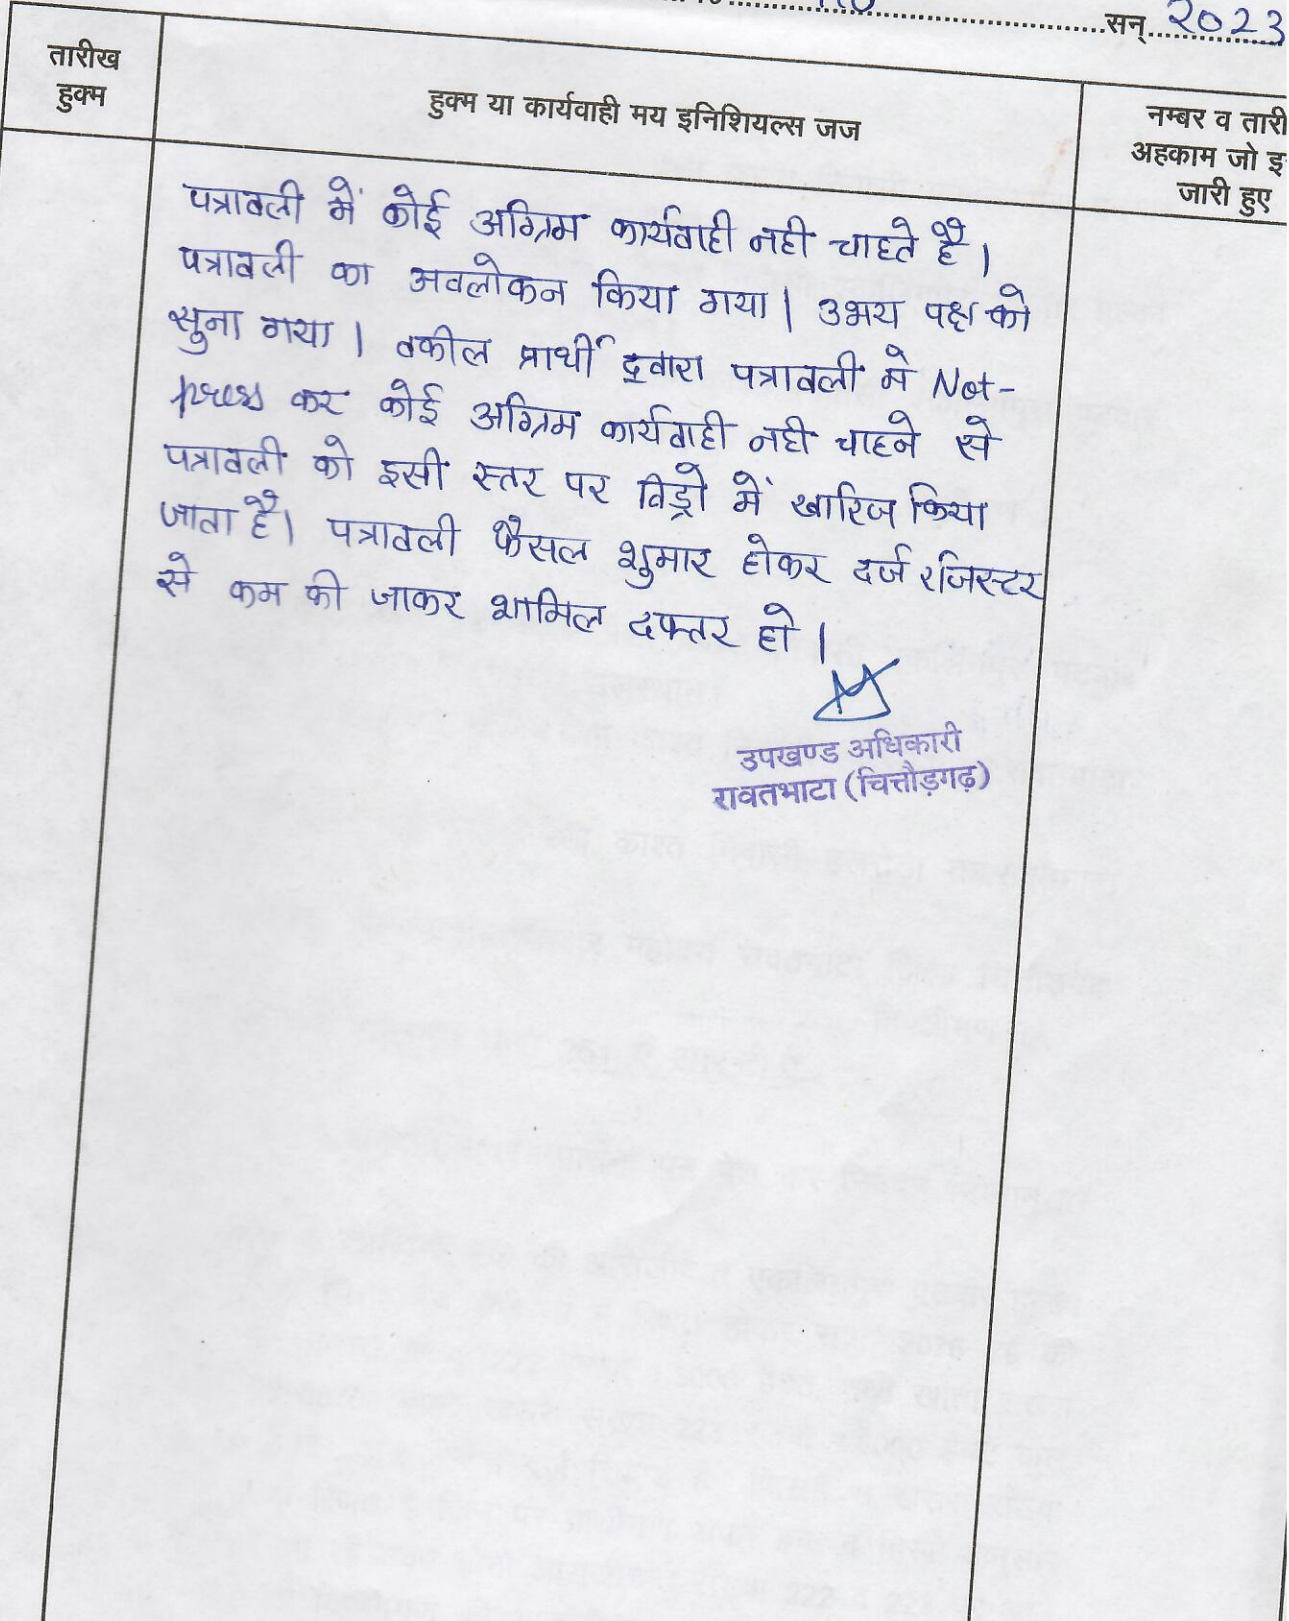 सन् 2023
तारीख
हुक्म
हुक्म या कार्यवाही मय इनिशियल्स जज
नम्बर व तारी
अहकाम जो इ
जारी हुए
पत्रावली में कोई अग्रिम कार्यवाही नही चाहते है।
पत्रावली का अवलोकन किया गया। उभय पक्ष को
सुना गया। वकील प्रार्थी द्वारा पत्रावली मे Not-
press कर कोई अग्रिम कार्यवाही नही चाहने से
पत्रावली को इसी स्तर पर विड्रो में खारिज किया
जाता है। पत्रावली फैसल शुमार होकर दर्ज रजिस्टर
से कम की जाकर शामिल दफ्तर हो।
उपखण्ड अधिकारी
रावतभाटा (चित्तौड़गढ़)